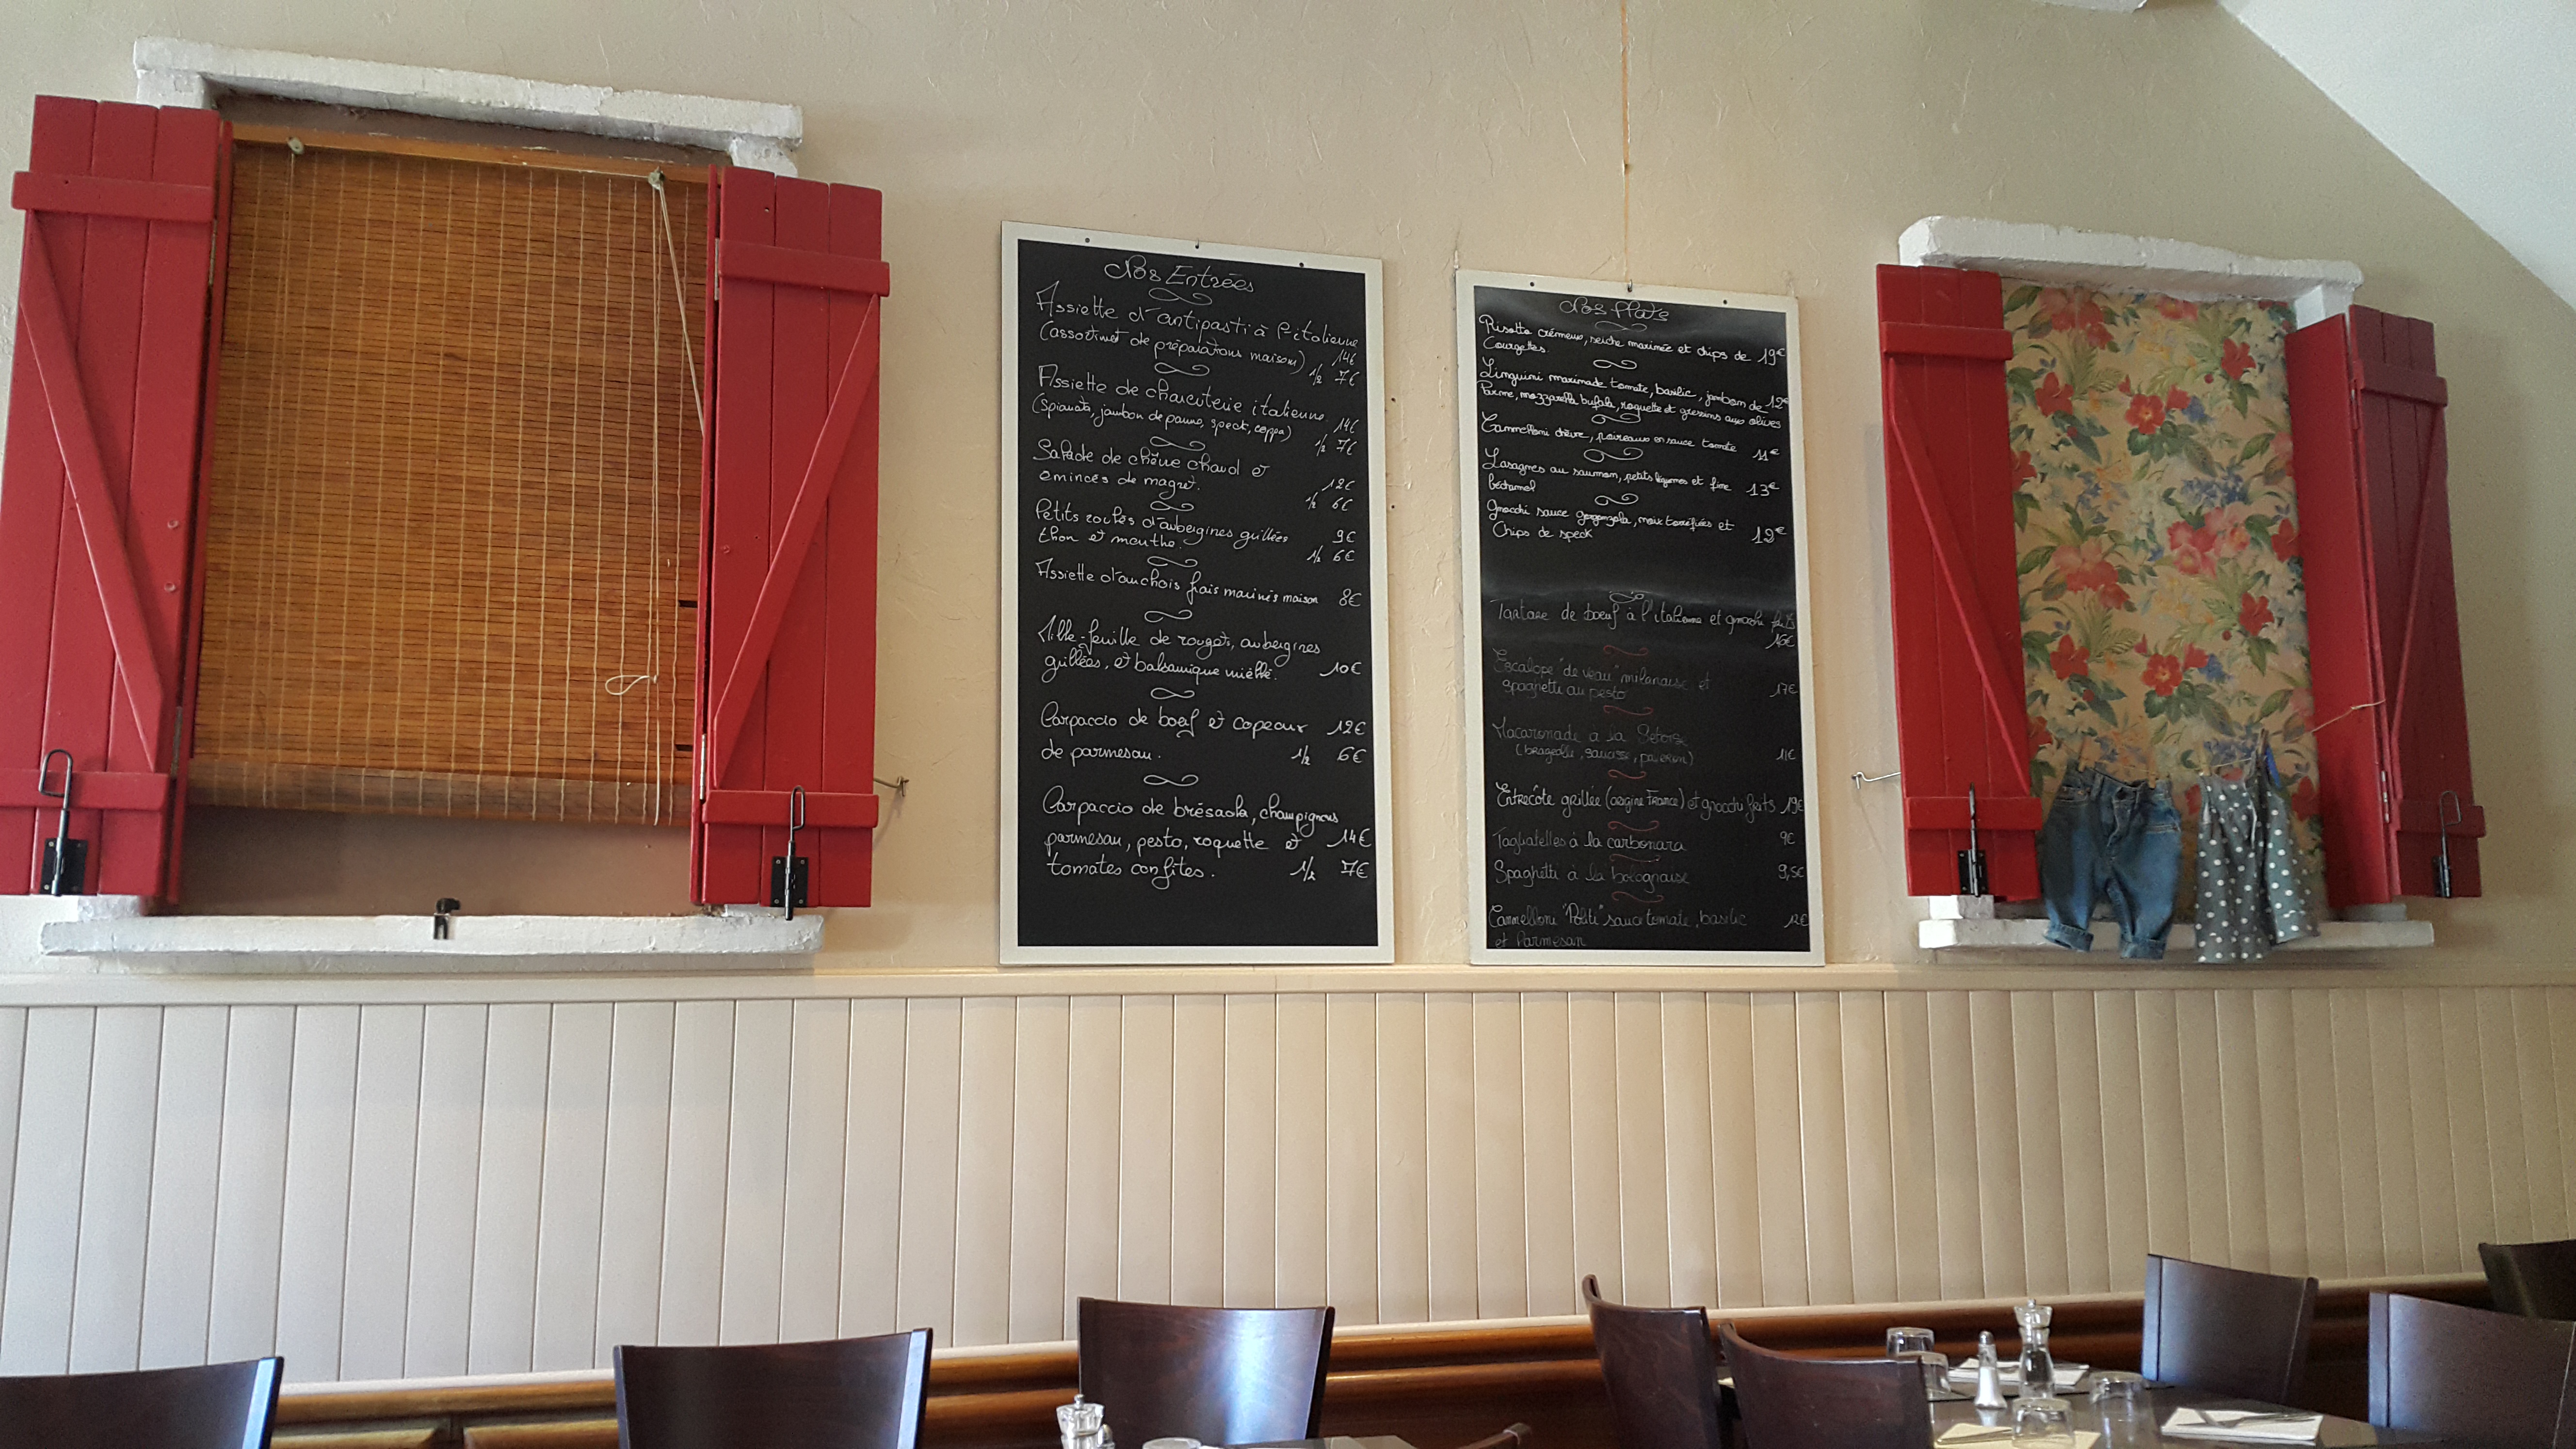 Nos Entrées
Assiette d'antipasti à l'italienne
(assortiment de préparations maison) 14€
1/2 7€
Assiette de charcuterie italienne 14€
(Spianata, jambon de parme, speck, coppa) 1/2 7€
Salade de chèvre chaud et
émincés de magret. 12€
1/2 6€
Petits roulés d'aubergines grillées 9€
thon et menthe. 1/2 6€
Assiette d'anchois frais marinés maison 8€
Mille-feuille de rougets, aubergines
grillées, et balsamique miellé. 10€
Carpaccio de boeuf et copeaux 12€
de parmesan. 1/2 6€
Carpaccio de brésaola, champignons
parmesan, pesto, roquette et 14€
tomates confites. 1/2 7€
Nos Plats
Risotto crémeux, seiche marinée et chips de 19€
Courgettes.
Linguini marinade tomate, basilic, jambon de 12€
Parme, mozzarella bufala, roquette et gressins aux olives
Cannelloni chèvre, poireaux en sauce tomate 11€
Lasagnes au saumon, petits légumes et fine 13€
béchamel
Gnocchi sauce gorgonzola, noix torréfiées et
Chips de speck 12€
Tartare de boeuf à l'italienne et gnocchi
16€
Escalope "de veau" milanaise et
spaghetti au pesto 17€
Macaronade à la Sétoise
(brageolle, saucisse, ) 11€
Entrecôte grillée (origine France) et gnocchi frits 19€
Tagliatelles à la carbonara 9€
Spaghetti à la bolognaise 9,5€
Cannelloni "Politi" sauce tomate, basilic 12€
et Parmesan